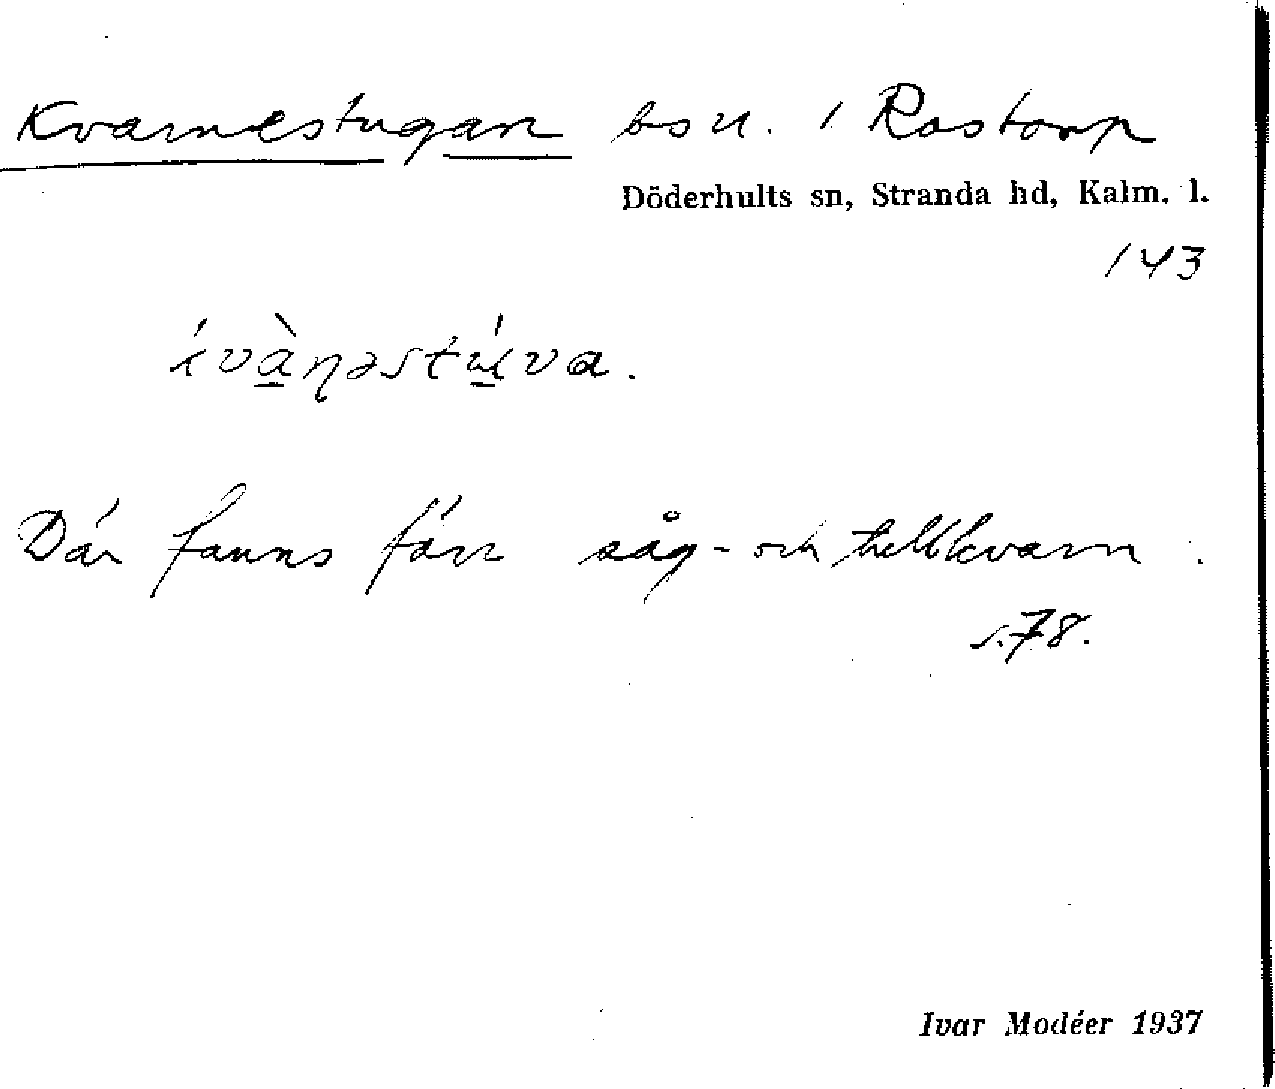 Kvarnestugan bs u. i Rostorp
Döderhults sn, Stranda hd, Kalm. l.
143
Där fanns förr såg- och tullkvarn.
s. 78.
Ivar Modéer 1937